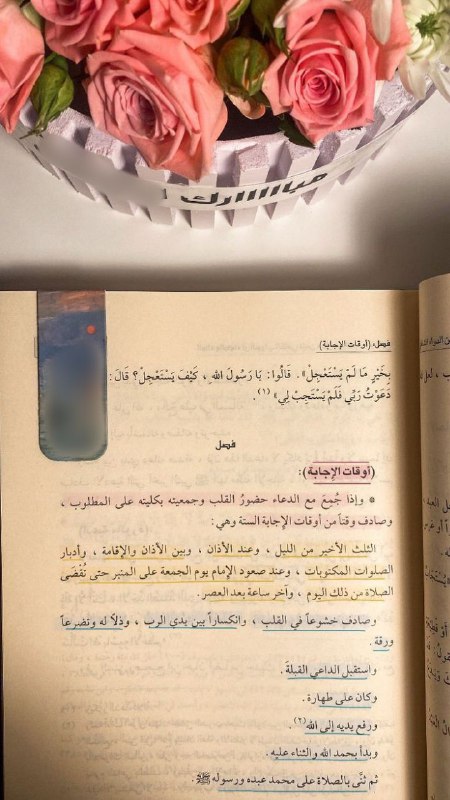 مبااااارك
فصل: (أوقات الإجابة)
بِخَيْرٍ مَا لَمْ يَسْتَعْجِلْ». قَالُوا: يَا رَسُولَ اللهِ ، كَيْفَ يَسْتَعْجِلُ؟ قَالَ:
دَعَوْتُ رَبِّي فَلَمْ يَسْتَجِبْ لِي» (١).
فصل
(أوقات الإجابة):
* وإذا جُمِعَ مع الدعاء حضورُ القلب وجمعيته بكليته على المطلوب ،
وصادف وقتاً من أوقات الإجابة الستة وهي:
الثلث الأخير من الليل ، وعند الأذان ، وبين الأذان والإقامة ، وأدبار
الصلوات المكتوبات ، وعند صعود الإمام يوم الجمعة على المنبر حتى تُقْضَى
الصلاة من ذلك اليوم ، وآخر ساعة بعد العصر.
وصادف خشوعاً في القلب ، وانكساراً بين يدي الرب ، وذلاً له وتضرعاً
ورقة
واستقبل الداعي القبلةَ .
وكان على طهارة .
ورفع يديه إلى الله(٢) .
وبدأ بحمد الله والثناء عليه .
ثم ثنَّى بالصلاة على محمد عبده ورسوله ﷺ .